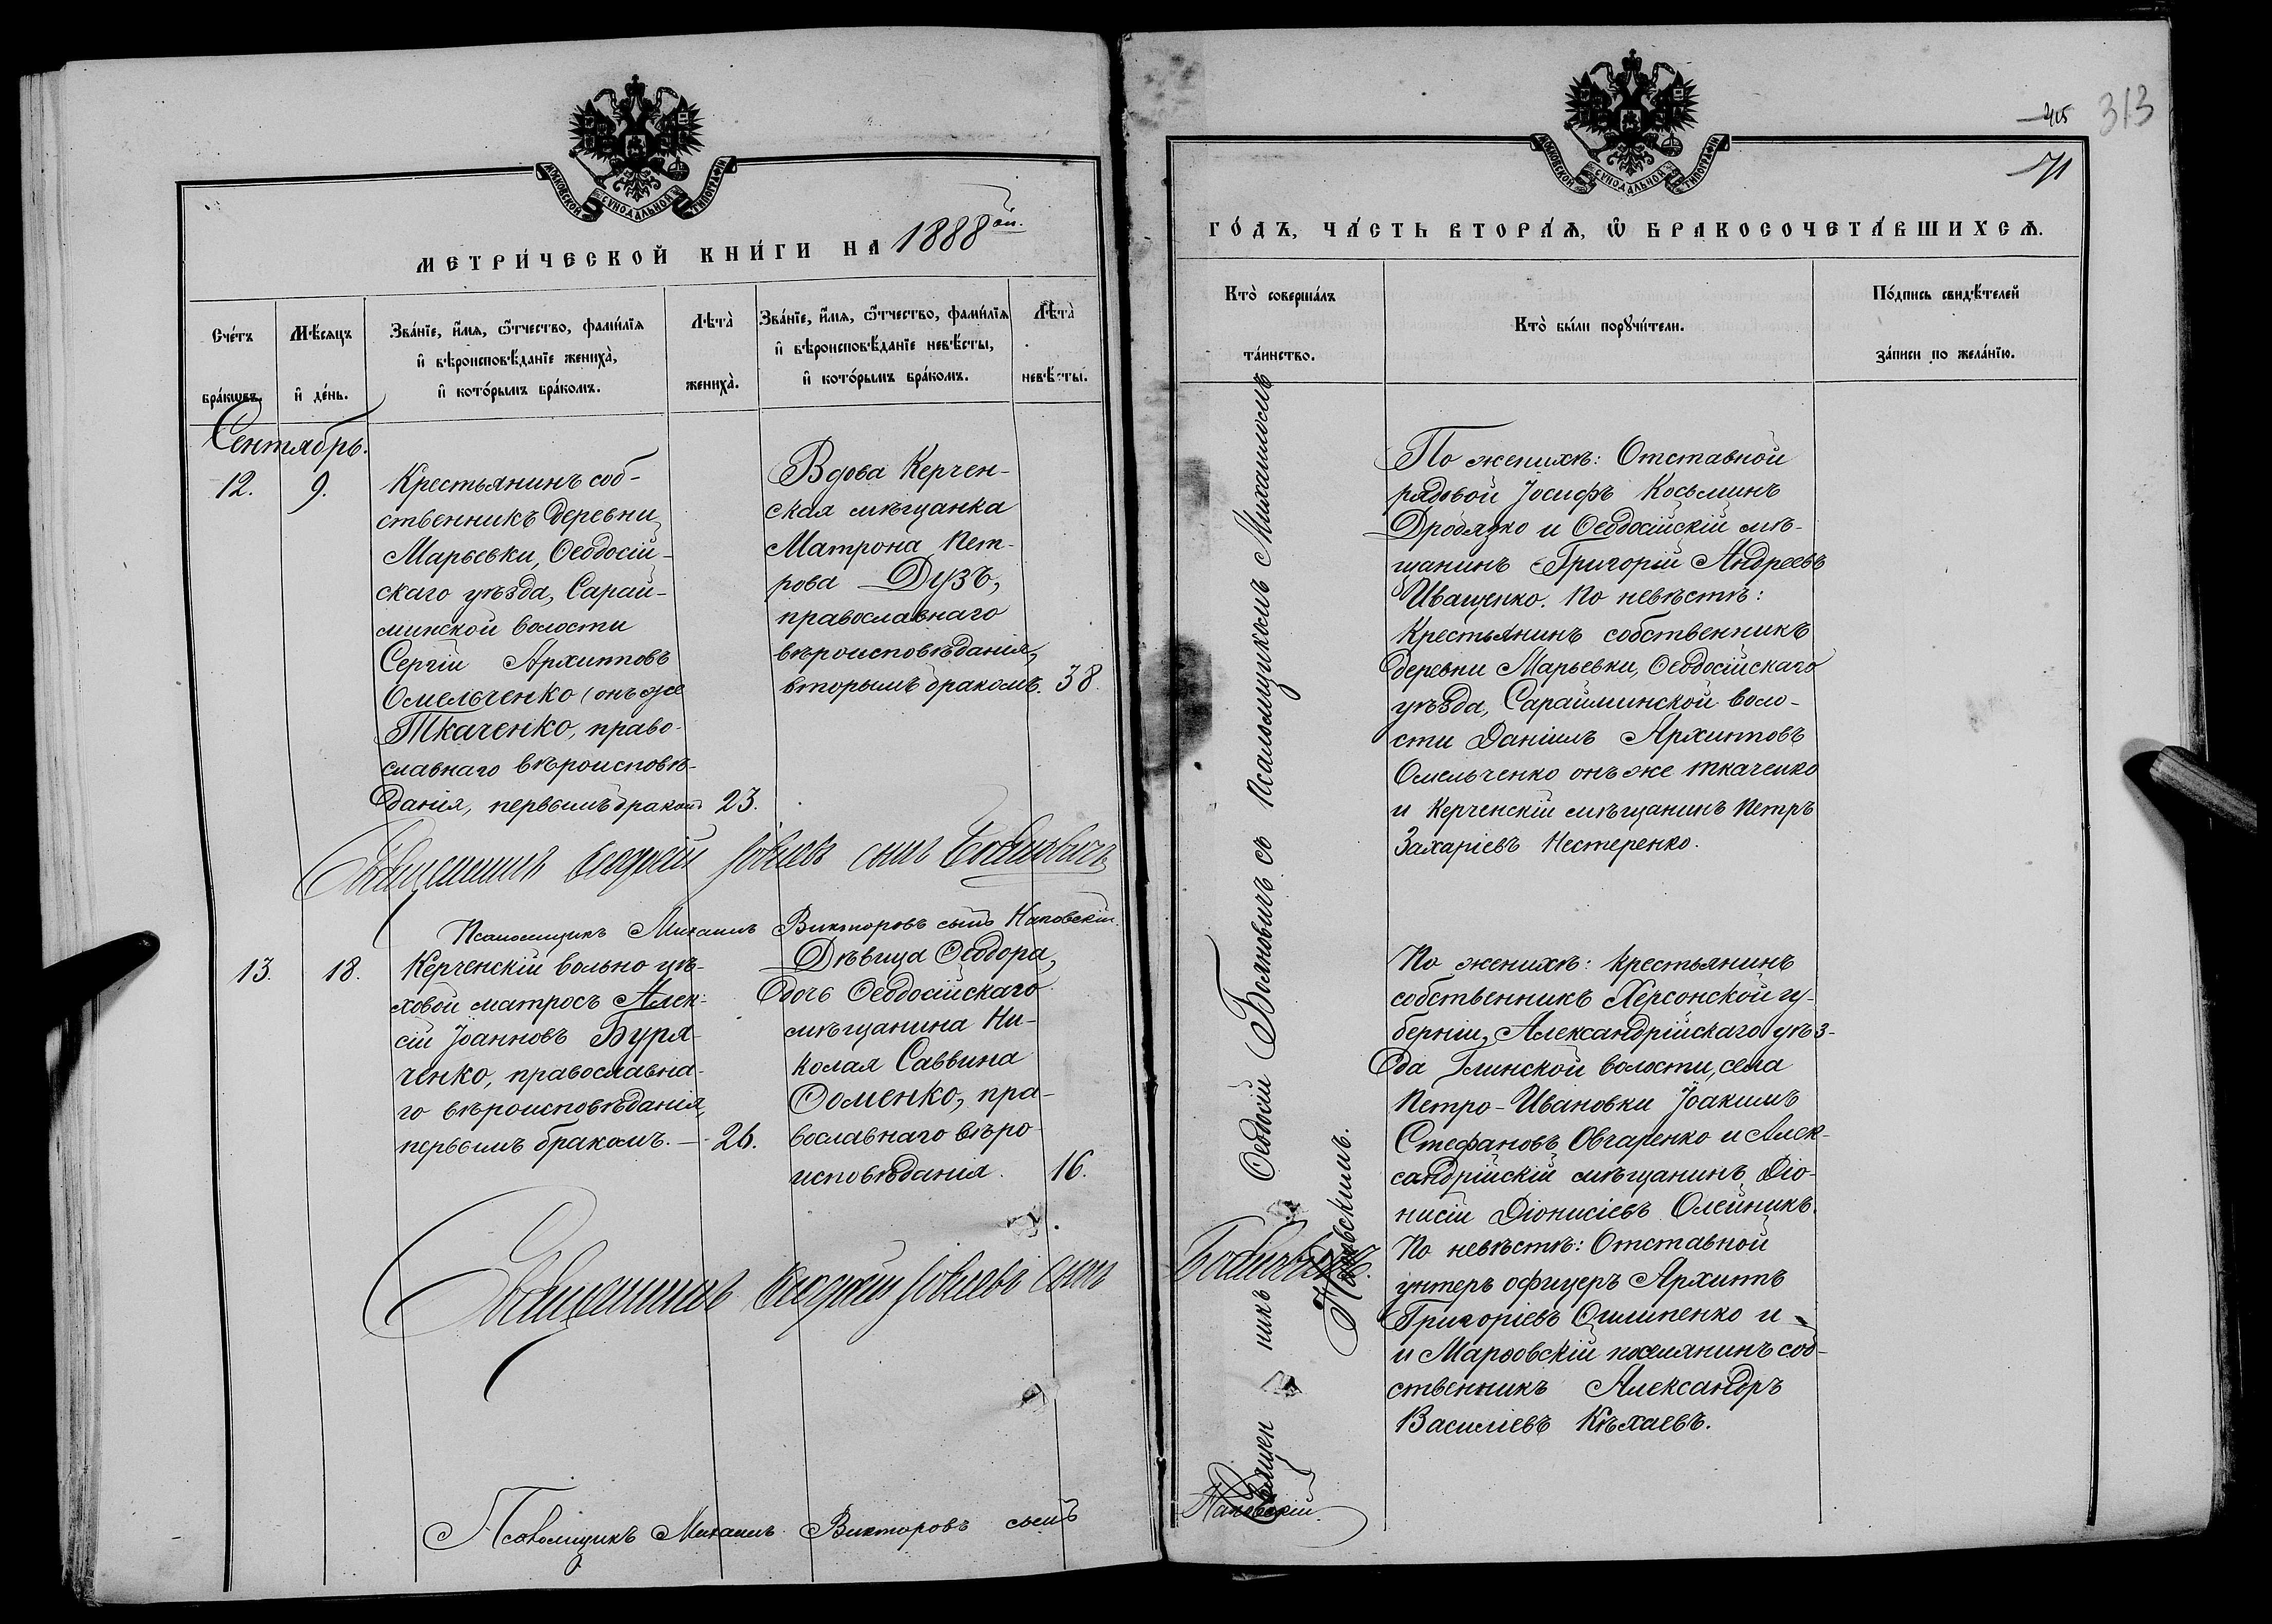 МОСКОВСКОЙ СѴНОДАЛЬНОЙ ТИПОГРАФІИ
МЕТРИ́ЧЕСКОЙ КНИ́ГИ НА 1888 ой.
Сче́тъ бра́кѡвъ.
Мѣ́сяцъ и҆ де́нь.
Зва́нїе, и҆́мя, ѻ҆́тчество, фамѝлїя
и҆ вѣроисповѣ́данїе женихà,
и҆ кото́рымъ бра́комъ.
Лѣтà женихà.
Зва́нїе, и҆́мя, ѻ҆́тчество, фамѝлїя
и҆ вѣроисповѣ́данїе невѣ́сты,
и҆ кото́рымъ бра́комъ.
Лѣтà невѣ́сты.
Сентябрь.
12. 9.
Крестьянинъ соб-
ственникъ деревни
Марьевки, Ѳеодосій-
скаго уѣзда, Сарай-
минской волости
Сергій Архиповъ
Омельченко (онъ же
Ткаченко, право-
славнаго вѣроисповѣ-
данія, первымъ бракомъ 23.
Вдова Керчен-
ская мѣщанка
Матрона Пет-
рова Дузь,
православнаго
вѣроисповѣданія,
вторымъ бракомъ. 38.
Священникъ Ѳеодосій сынъ Боляновичъ
Псаломщикъ Михаилъ Викторовъ сынъ Наповскій.
13. 18.
Керченскій вольно цѣ-
ховой матросъ Алек-
сій Іоанновъ Буря-
ченко, православна-
го вѣроисповѣданія,
первымъ бракомъ. — 26.
Дѣвица Ѳеодора,
дочь Ѳеодосійскаго
мѣщанина Ни-
колая Саввина
Ѳоменко, пра-
вославнаго вѣро-
исповѣданія. 16.
Священникъ Ѳеодосій сынъ
Псаломщикъ Михаилъ Викторовъ сынъ
313
71
МОСКОВСКОЙ СѴНОДАЛЬНОЙ ТИПОГРАФІИ
ГО́ДЪ, ЧА́СТЬ ВТОРА́Я, Ѡ҆ БРАКОСОЧЕТА́ВШИХСЯ.
Ктò соверша́лъ та́инство.
Ктò бы́ли порꙋчи́тели.
По́дпись свидѣ́телей за́писи по жела́нїю.
Священникъ Ѳеодосій Боляновичъ съ псаломщикомъ Михаиломъ
Наповскимъ.
Боляновичъ.
Наповскій.
По женихѣ: Отставной
рядовой Іосифъ Косьминъ
Дробязко и Ѳеодосійскій мѣ-
щанинъ Григорій Андреевъ
Иващенко. По невѣстѣ:
Крестьянинъ собственникъ
деревни Марьевки, Ѳеодосійскаго
уѣзда, Сарайминской воло-
сти Даніилъ Архиповъ
Омельченко онъ же Ткаченко
и Керченскій мѣщанинъ Петръ
Захаріевъ Нестеренко.
По женихѣ: крестьянинъ
собственникъ Херсонской гу-
берніи, Александрійскаго уѣз-
да Глинской волости, села
Петро-Ивановки Іоакимъ
Стефановъ Овчаренко и Алек-
сандрійскій мѣщанинъ Діо-
нисій Діонисіевъ Олейникъ.
По невѣстѣ: Отставной
унтеръ офицеръ Архипъ
Григоріевъ Филипенко и
и Марѳовскій поселянинъ соб-
ственникъ Александръ
Василіевъ Кѣхаевъ.